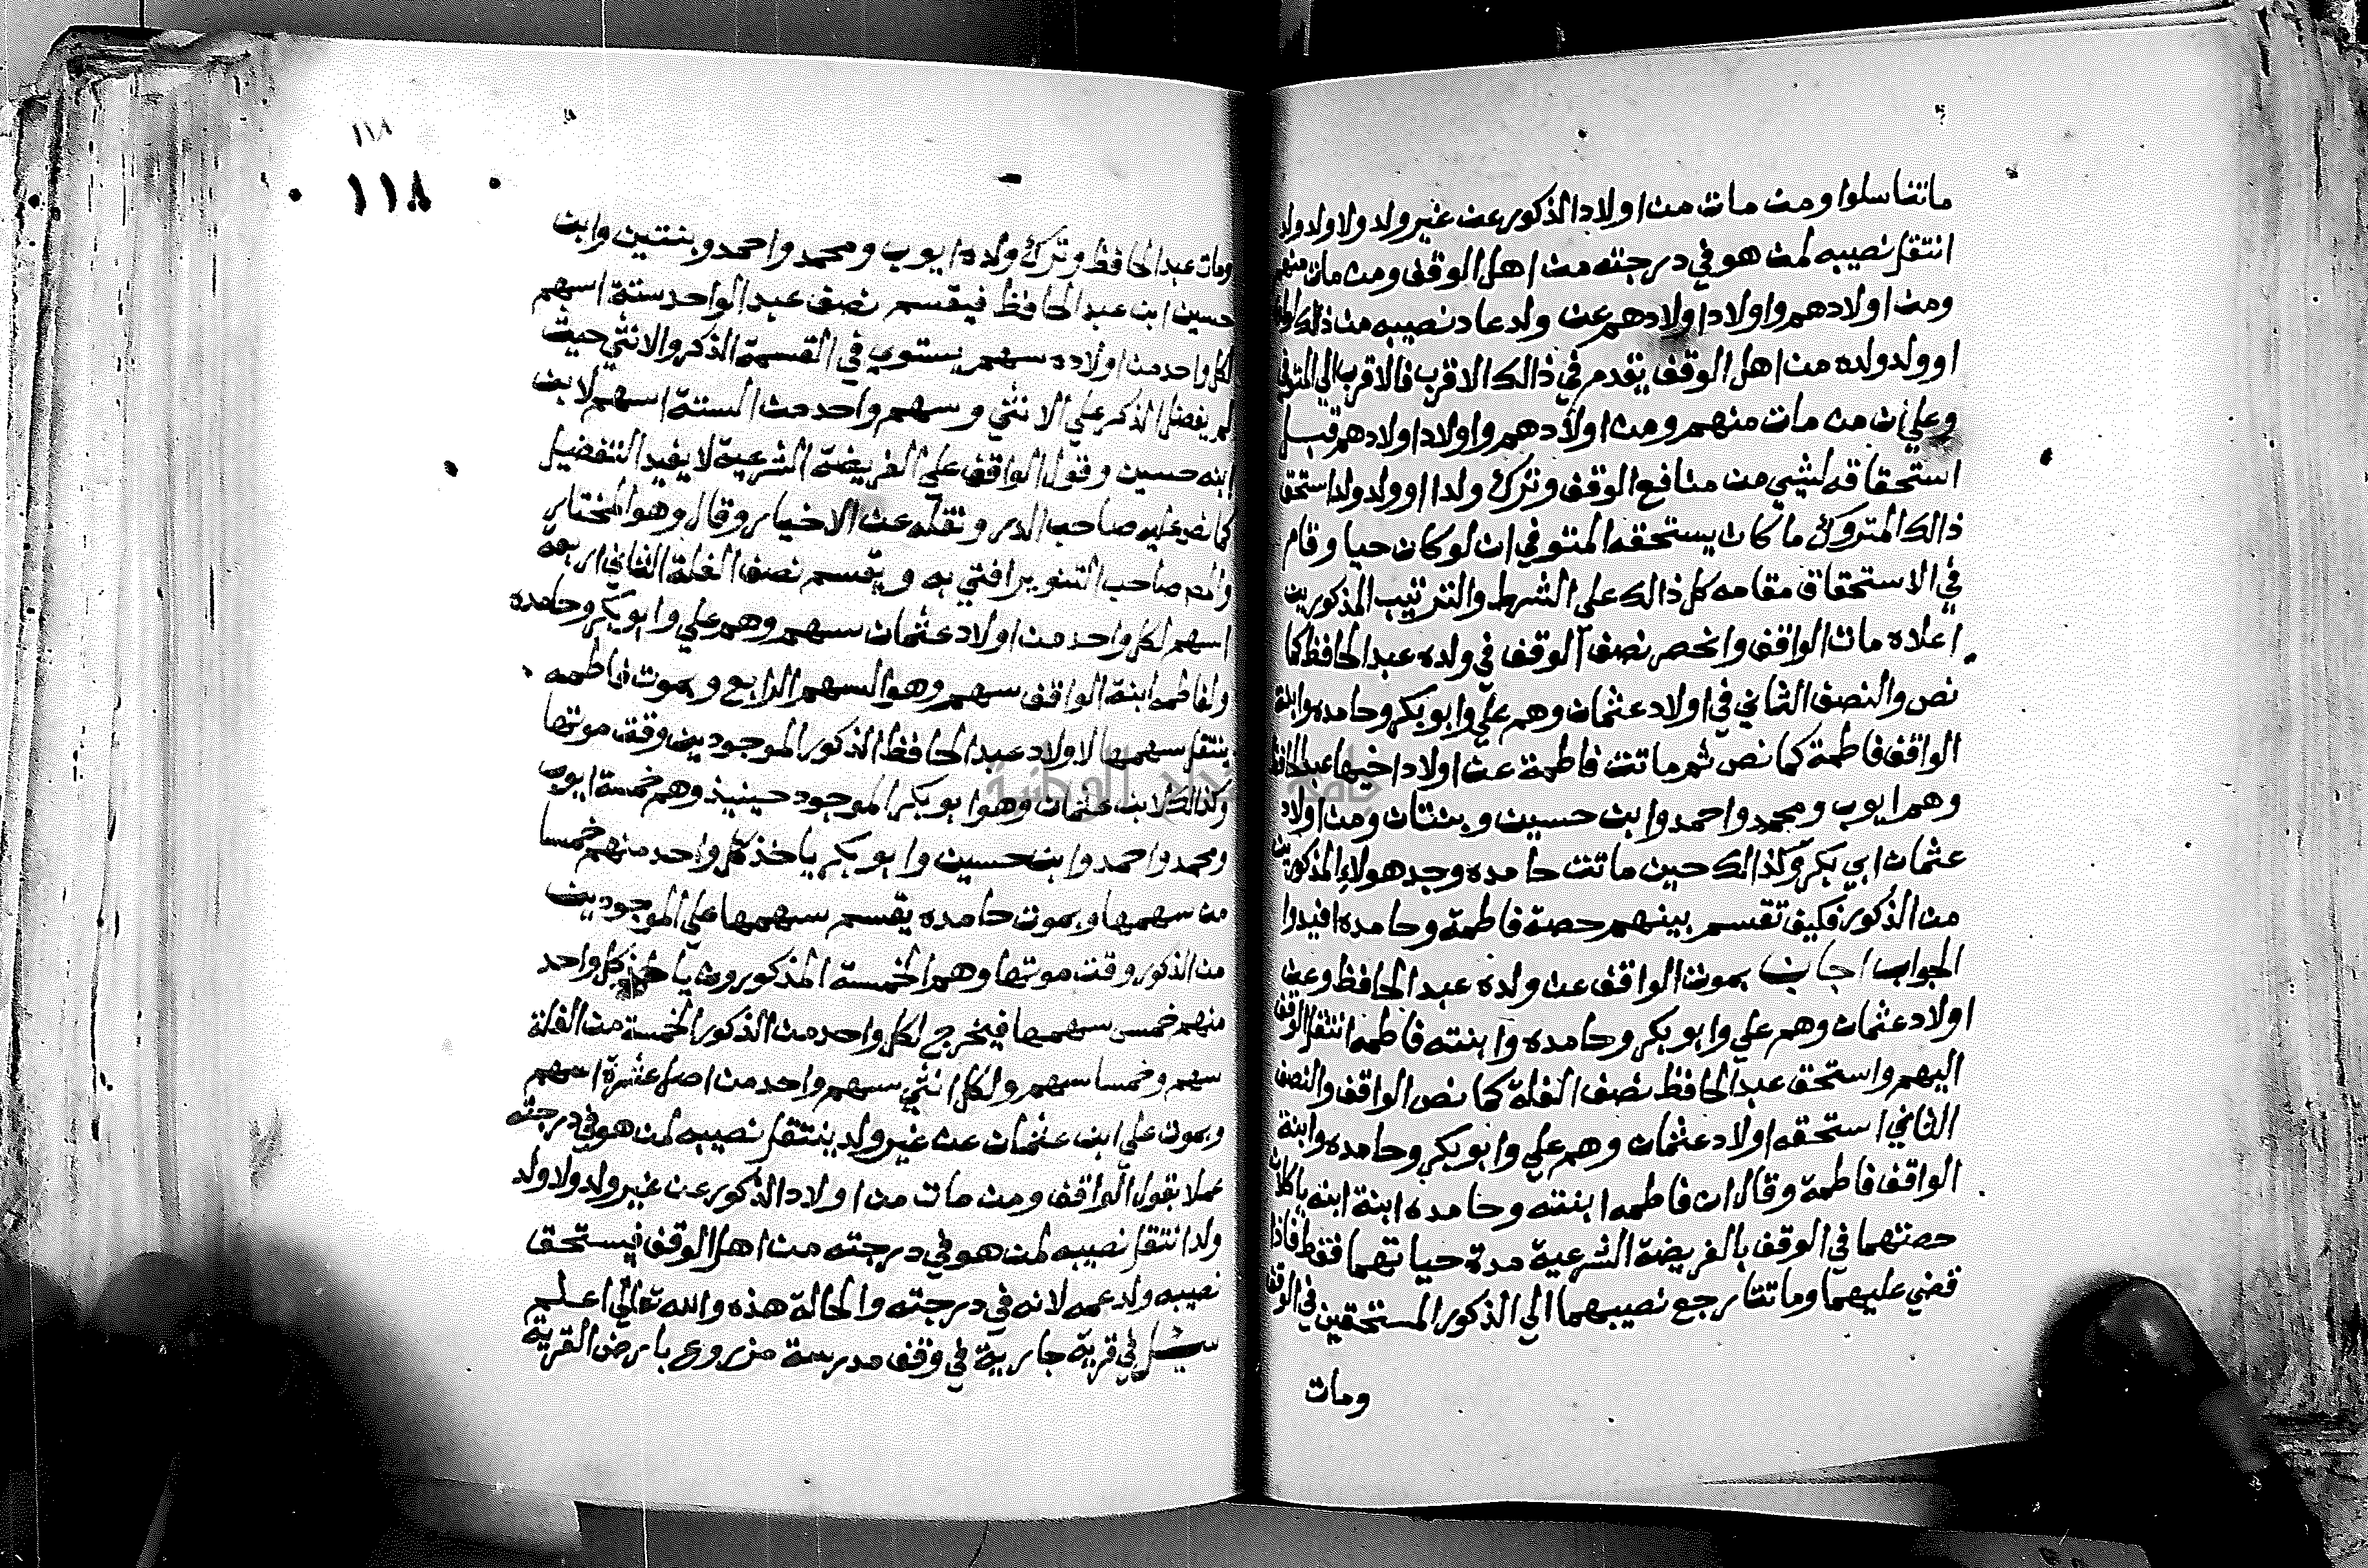 ماتناسلوا ومن مات من اولاد الذكور عن غير ولد ولا ولد ولد
انتقل نصيبه لمن هو في درجته من اهل الوقف ومن مات منهم
ومن اولادهم واولاد اولادهم عن ولد عاد نصيبه من ذلك
او ولد ولده من اهل الوقف يقدم في ذالك الاقرب فالاقرب الي المتوفي
وعلي ان من مات منهم ومن اولادهم واولاد اولادهم قبل
استحقاقه لشيي من منافع الوقف وترك ولدا او ولد ولد استحق
ذالك المتروك ما كان يستحقه المتوفي ان لو كان حيا وقام
في الاستحقاق مقامه كل ذالك علي الشرط والترتيب المذكورين
اعلاه مات الواقف وانحصر نصف الوقف في ولده عبد الحافظ كما
نص والنصف الثاني في اولاد عثمان وهم علي وابو بكر وحامده وابنة
الواقف فاطمة كما نص ثم ماتت فاطمة عن اولاد اخيها عبد الحافظ
وهم ايوب ومحمد واحمد وابن حسين وبنتان ومن اولاد
عثمان ابي بكر وكذالك حين ماتت حامده وجد هولاء المذكورين
من الذكور فكيف تقسم بينهم حصة فاطمة وحامده افيدوا
الجواب اجاب بموت الواقف عن ولده عبد الحافظ وعن
اولاد عثمان وهم علي وابو بكر وحامده وابنته فاطمه انتقل الوقف
اليهم واستحق عبد الحافظ نصف الغلة كما نص الواقف والنصف
الثاني استحقه اولاد عثمان وهم علي وابو بكر وحامده وابنة
الواقف فاطمة وقال ان فاطمه ابنته وحامده ابنة ابنه ياكلان
حصتهما في الوقف بالفريضة الشرعية مدة حياتهما فقط فاذا
قضي عليهما وماتتا رجع نصيبهما الي الذكور المستحقين في الوقف
ومات
١١٨
١١٨
ومات عبد الحافظ وترك ولاده ايوب ومحمد واحمد وبنتين وابن
حسين ابن عبد الحافظ فيقسم نصف عبد الواحد ستة اسهم
لكل واحد من اولاده سهم يستوي في القسمة الذكر والانثي حيث
لم يفضل الذكر علي الانثي وسهم واحد من الستة اسهم لابن
ابنه حسين وقول الواقف علي الفريضة الشرعية لا يفيد التفضيل
كما نص عليه صاحب الدر ونقله عن الاخيار وقال وهو المختار
صاحب التنوير افتي به ويقسم نصف الغلة الثاني اربعة
اسهم لكل واحد من اولاد عثمان سهم وهم علي وابو بكر وحامده
ولفاطمه ابنة الواقف سهم وهو السهم الرابع وبموت فاطمه
ينتقل سهمها لاولاد عبد الحافظ الذكور الموجودين وقت موتها
وكذالك لابن عثمان وهو ابو بكر الموجود حينيذ وهم خمسة ايوب
ومحمد واحمد وابن حسين وابو بكر ياخذ كل واحد منهم خمسا
من سهمها وبموت حامده يقسم سهمها علي الموجودين
من الذكور وقت موتها وهم الخمسة المذكورون ياخذ كل واحد
منهم خمس سهمها فيخرج لكل واحد من الذكور الخمسة من الغلة
سهم وخمسا سهم ولكل انثي سهم واحد من اصل عشرة اسهم
وبموت علي ابن عثمان عن غير ولد ينتقل نصيبه لمن هو في درجته
عملا بقول الواقف ومن مات من اولاد الذكور عن غير ولد ولا ولد
ولد انتقل نصيبه لمن هو في درجته من اهل الوقف فيستحق
نصيبه ولد عمه لانه في درجته والحالة هذه والله تعالي اعلم
سئل في قرية جارية في وقف مدرسة مزروع بارض القرية